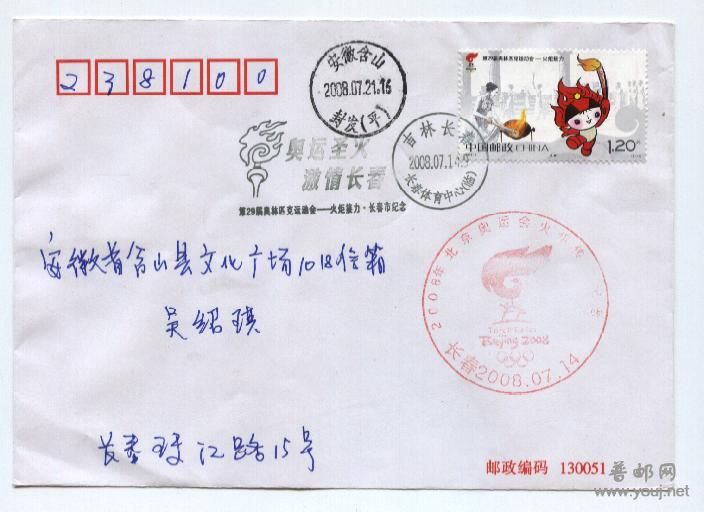 238100
安徽含山
2008.07.21.16
封发(平)
第29届奥林匹克运动会——火炬接力
中国邮政 CHINA
1.20元
奥运圣火
激情长春
第29届奥林匹克运动会——火炬接力·长春市纪念
吉林长春
2008.07.14
长春体育中心(临)
安徽省含山县文化广场1018信箱
吴绍琪
2008年北京奥运会火炬
Torch Relay
Beijing 2008
长春2008.07.14
长春 江路15号
邮政编码 130051
普邮网
www.youj.net